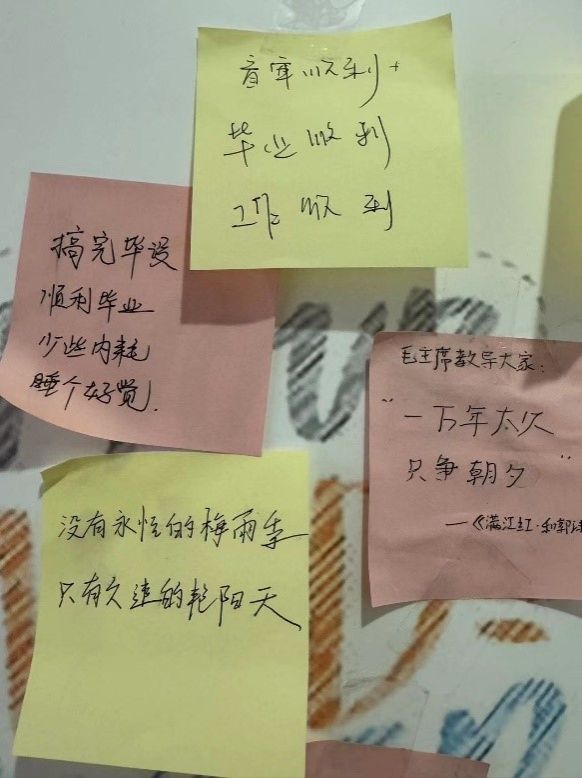 盲审顺利+
毕业顺利
工作顺利
搞完毕设
顺利毕业
少些内耗
睡个好觉.
毛主席教导大家:
“一万年太久
只争朝夕”
—《满江红·和郭沫
没有永恒的梅雨季
只有久违的艳阳天